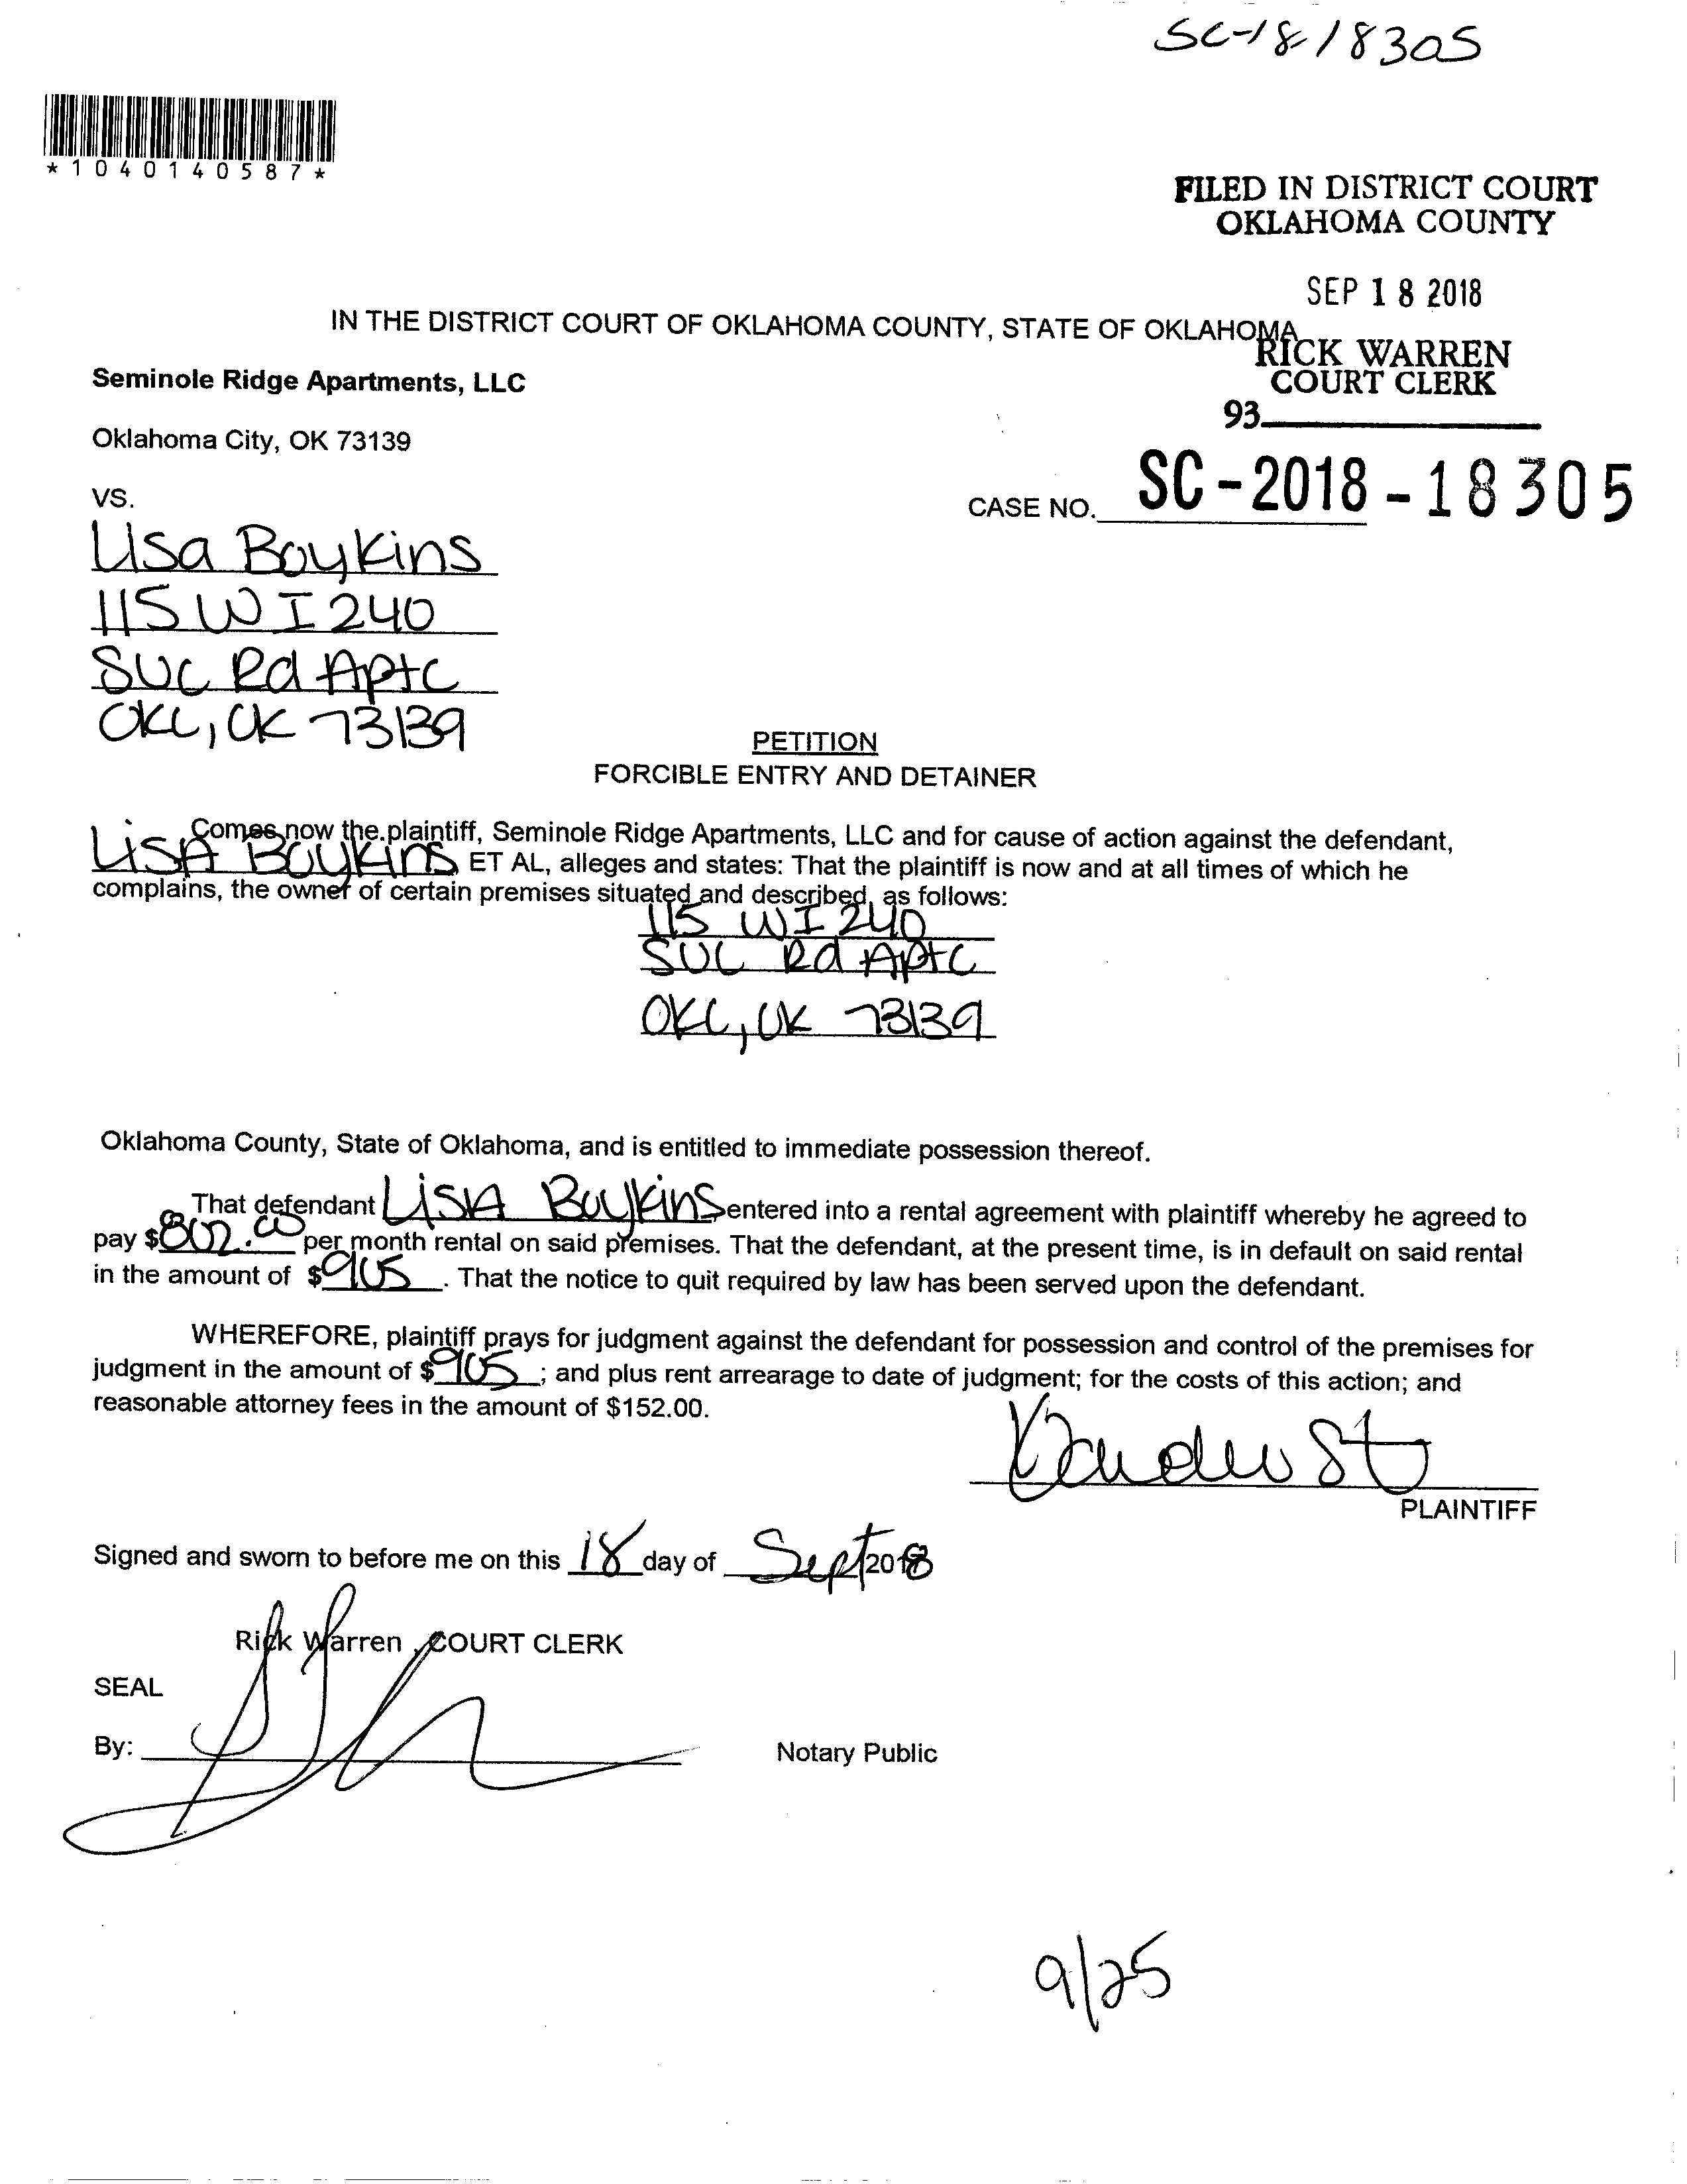 SC-18-18305
*1040140587*
FILED IN DISTRICT COURT
OKLAHOMA COUNTY
SEP 18 2018
IN THE DISTRICT COURT OF OKLAHOMA COUNTY, STATE OF OKLAHOMA
RICK WARREN
COURT CLERK
93
Seminole Ridge Apartments, LLC
Oklahoma City, OK 73139
VS.
CASE NO. SC-2018-18305
Lisa Boykins
115 W I 240
SVC Rd Apt C
OKC, OK 73139
PETITION
FORCIBLE ENTRY AND DETAINER
Comes now the plaintiff, Seminole Ridge Apartments, LLC and for cause of action against the defendant,
LiSA Boykins ET AL, alleges and states: That the plaintiff is now and at all times of which he
complains, the owner of certain premises situated and described, as follows:
115 W I 240
SVC Rd Apt C
OKC, OK 73139
Oklahoma County, State of Oklahoma, and is entitled to immediate possession thereof.
That defendant LiSA Boykins entered into a rental agreement with plaintiff whereby he agreed to
pay $802.00 per month rental on said premises. That the defendant, at the present time, is in default on said rental
in the amount of $905. That the notice to quit required by law has been served upon the defendant.
WHEREFORE, plaintiff prays for judgment against the defendant for possession and control of the premises for
judgment in the amount of $905; and plus rent arrearage to date of judgment; for the costs of this action; and
reasonable attorney fees in the amount of $152.00.
PLAINTIFF
Signed and sworn to before me on this 18 day of Sept 2018
Rick Warren, COURT CLERK
SEAL
By:
Notary Public
9/25